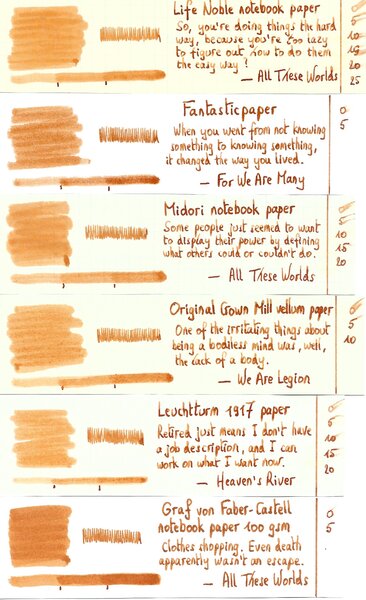 Life Noble notebook paper
So, you're doing things the hard
way, because you're too lazy
to figure out how to do them
the easy way !
— All These Worlds
0
5
10
15
20
25
Fantasticpaper
When you went from not knowing
something to knowing something,
it changed the way you lived.
— For We Are Many
0
5
Midori notebook paper
Some people just seemed to want
to display their power by defining
what others could or couldn't do.
— All These Worlds
0
5
10
15
20
Original Crown Mill vellum paper
One of the irritating things about
being a bodiless mind was, well,
the lack of a body.
— We Are Legion
0
5
10
Leuchtturm 1917 paper
Retired just means I don't have
a job description, and I can
work on what I want now.
— Heaven's River
0
5
10
15
20
Graf von Faber-Castell
notebook paper 100 gsm
Clothes shopping. Even death
apparently wasn't an escape.
— All These Worlds
0
5